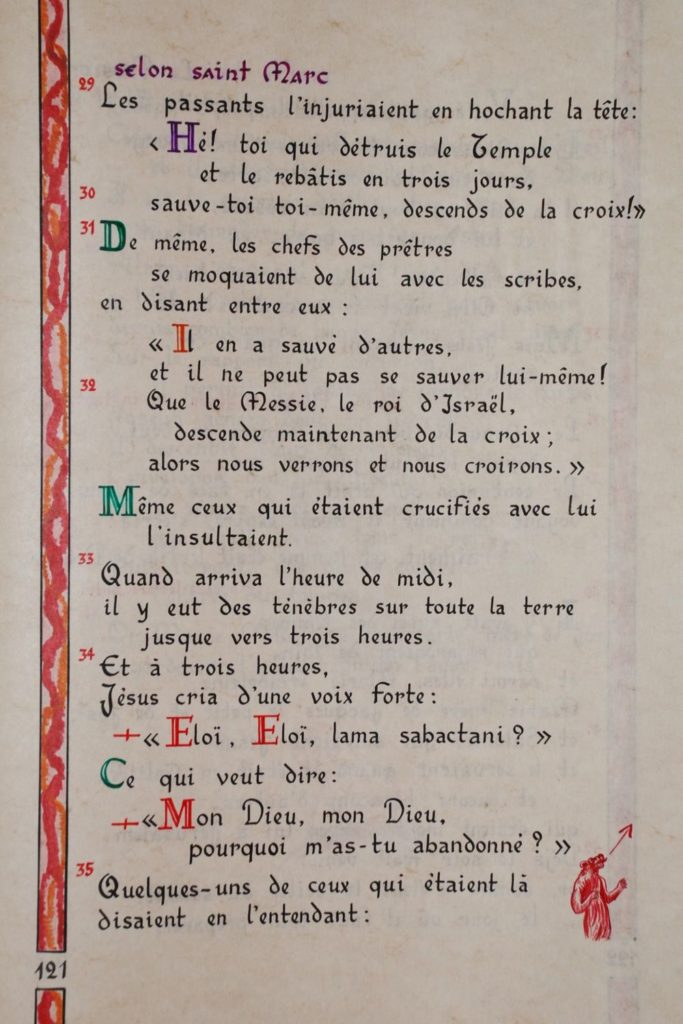 selon saint Marc
29
Les passants l'injuriaient en hochant la tête:
‹ Hé! toi qui détruis le Temple
et le rebâtis en trois jours,
30
sauve-toi toi-même, descends de la croix!»
31
De même, les chefs des prêtres
se moquaient de lui avec les scribes,
en disant entre eux :
« Il en a sauvé d'autres,
et il ne peut pas se sauver lui-même!
32
Que le Messie, le roi d'Israël,
descende maintenant de la croix ;
alors nous verrons et nous croirons. »
Même ceux qui étaient crucifiés avec lui
l'insultaient.
33
Quand arriva l'heure de midi,
il y eut des ténèbres sur toute la terre
jusque vers trois heures.
34
Et à trois heures,
Jésus cria d'une voix forte :
« Eloï, Eloï, lama sabactani ? »
Ce qui veut dire :
« Mon Dieu, mon Dieu,
pourquoi m'as-tu abandonné ? »
35
Quelques-uns de ceux qui étaient là
disaient en l'entendant :
121